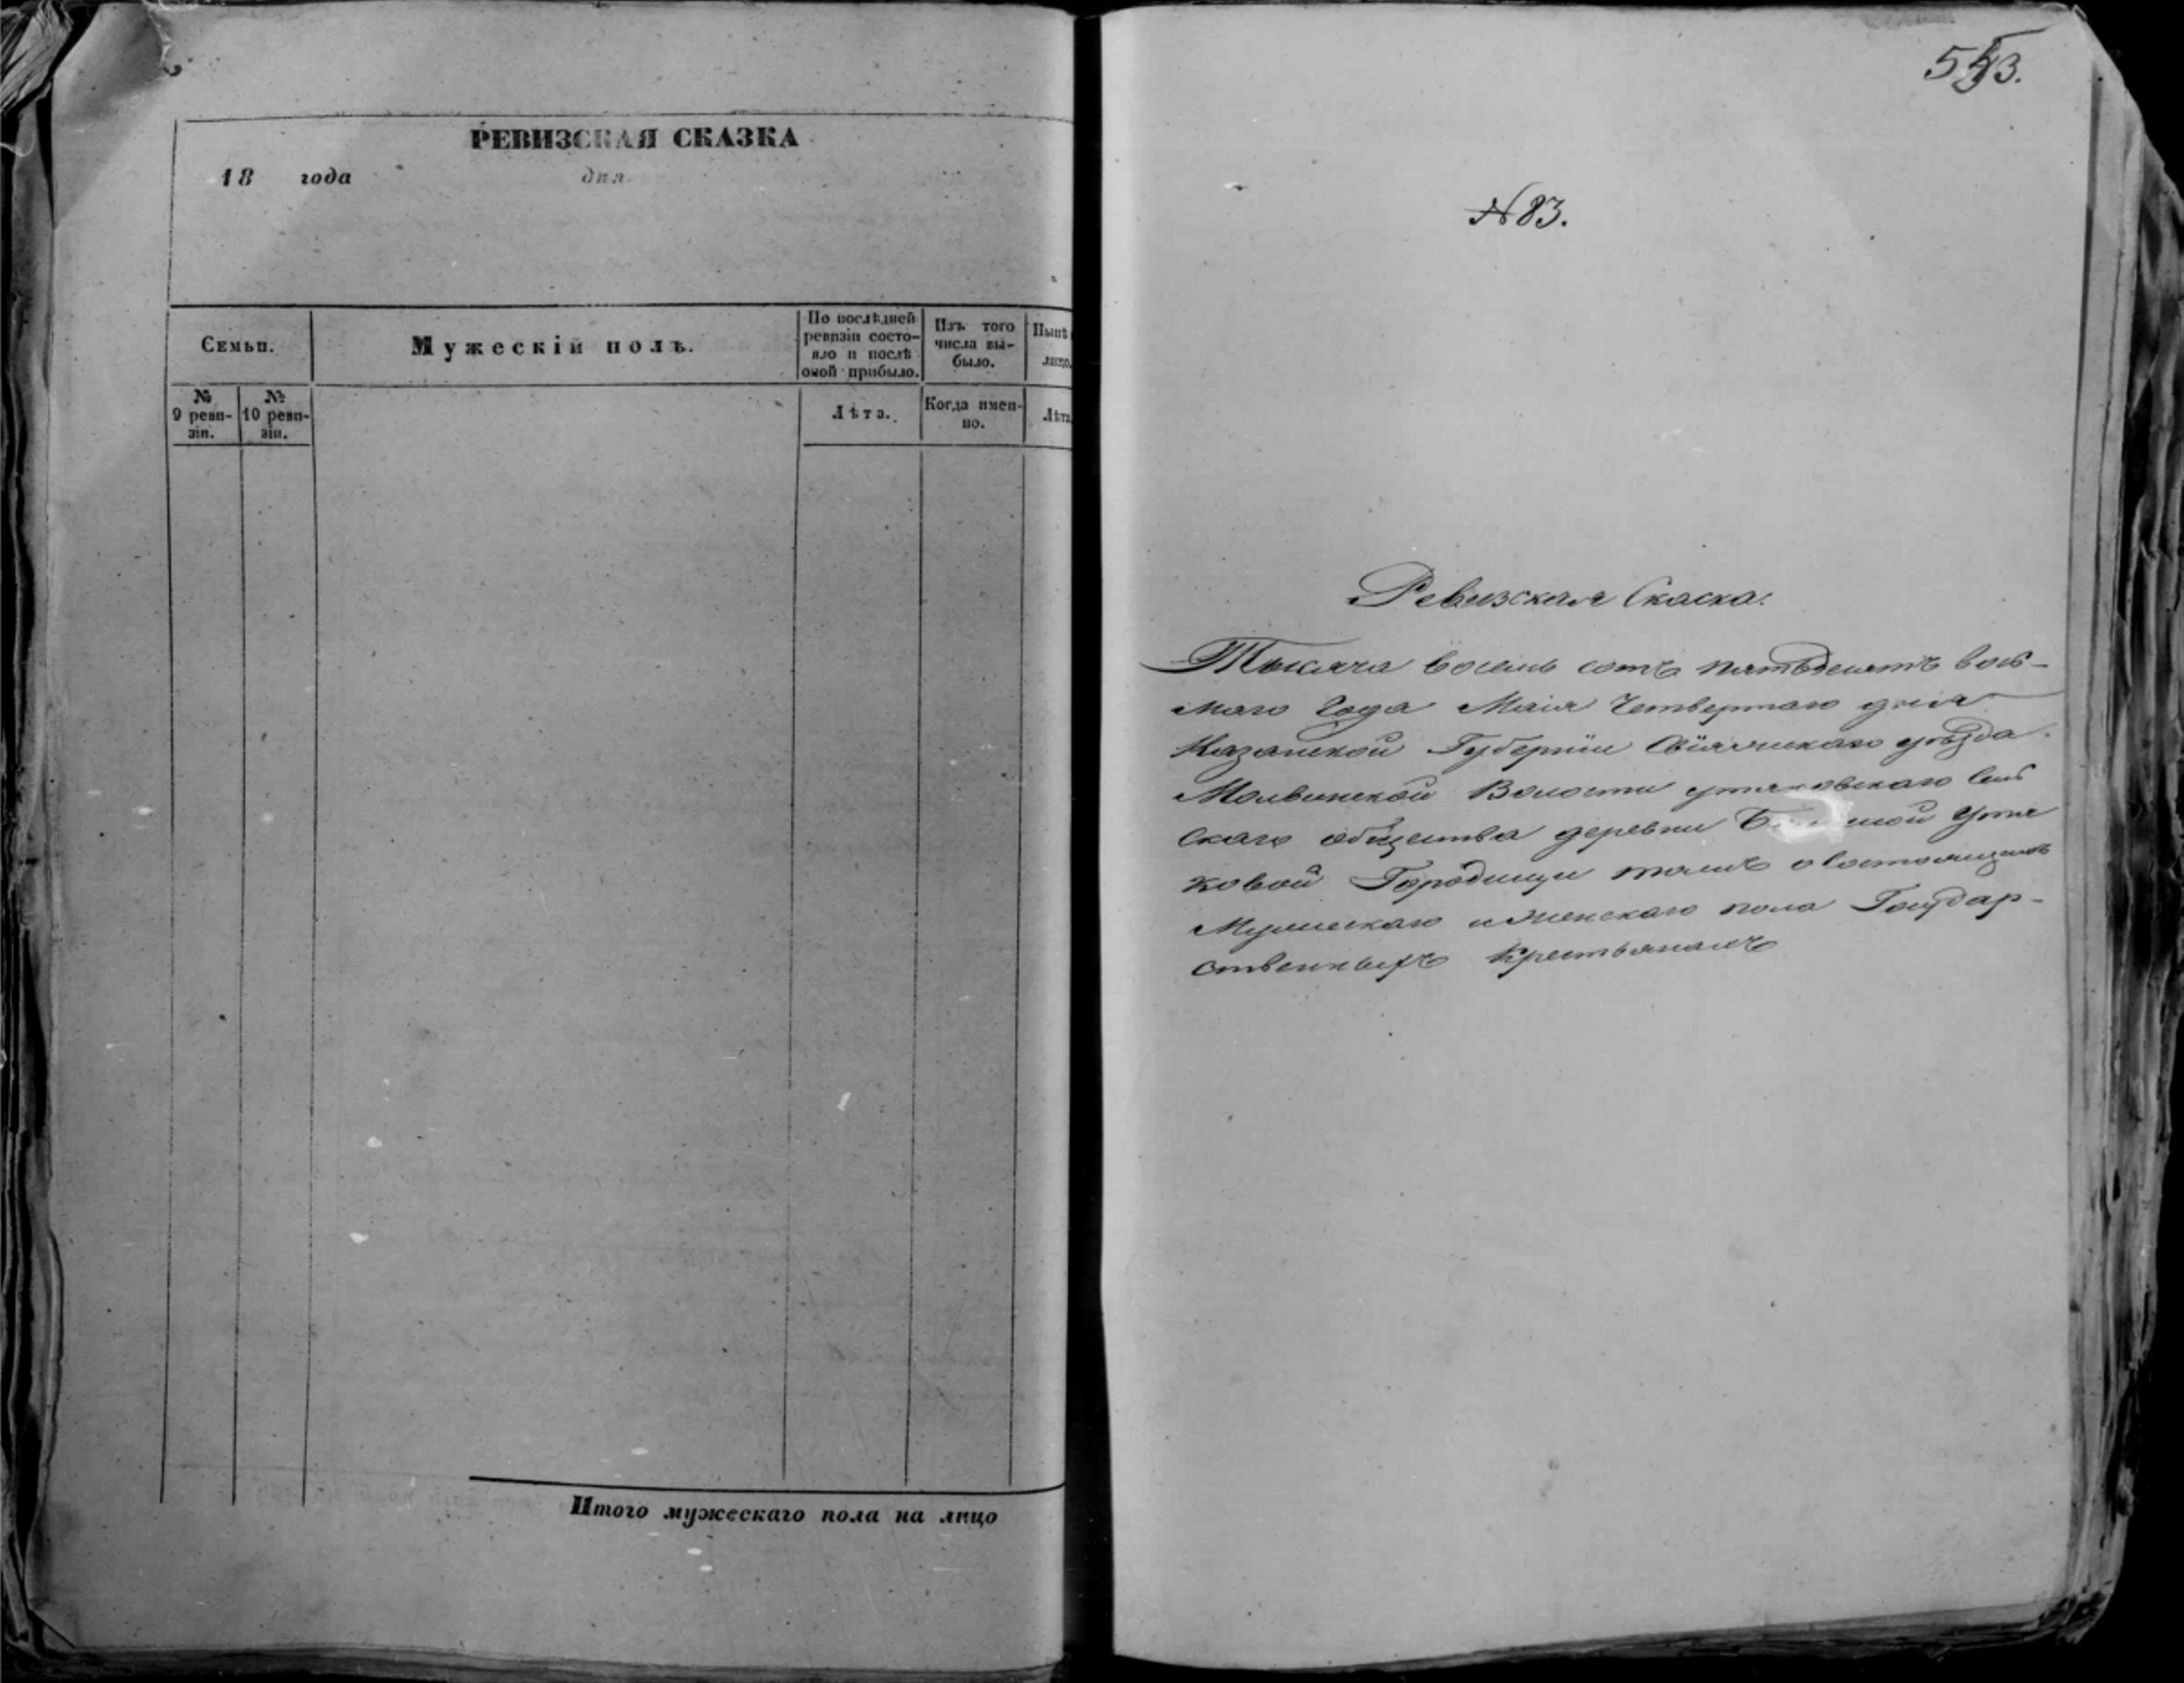 РЕВИЗСКАЯ СКАЗКА
18 года дня
Семьи.
Мужескій полъ.
По послѣдней
ревизіи состо-
яло и послѣ
оной прибыло.
Изъ того
числа вы-
было.
Нынѣ
лицо.
№
9 реви-
зіи.
№
10 реви-
зіи.
Лѣта.
Когда имен-
но.
Лѣта.
Итого мужескаго пола на лицо
553.
№ 83.
Ревизская Скаска.
Тысяча восемь сотъ пятьдесятъ вось-
маго Года Маія Четвертаго дня
Казанской Губерніи Свіяжскаго уѣзда
Молвинской Волости утяковскаго Сель
скаго общества деревни утя
ковой Городищи тожъ о состоящихъ
Мужескаго и женскаго пола Государ-
ственныхъ Крестьянахъ